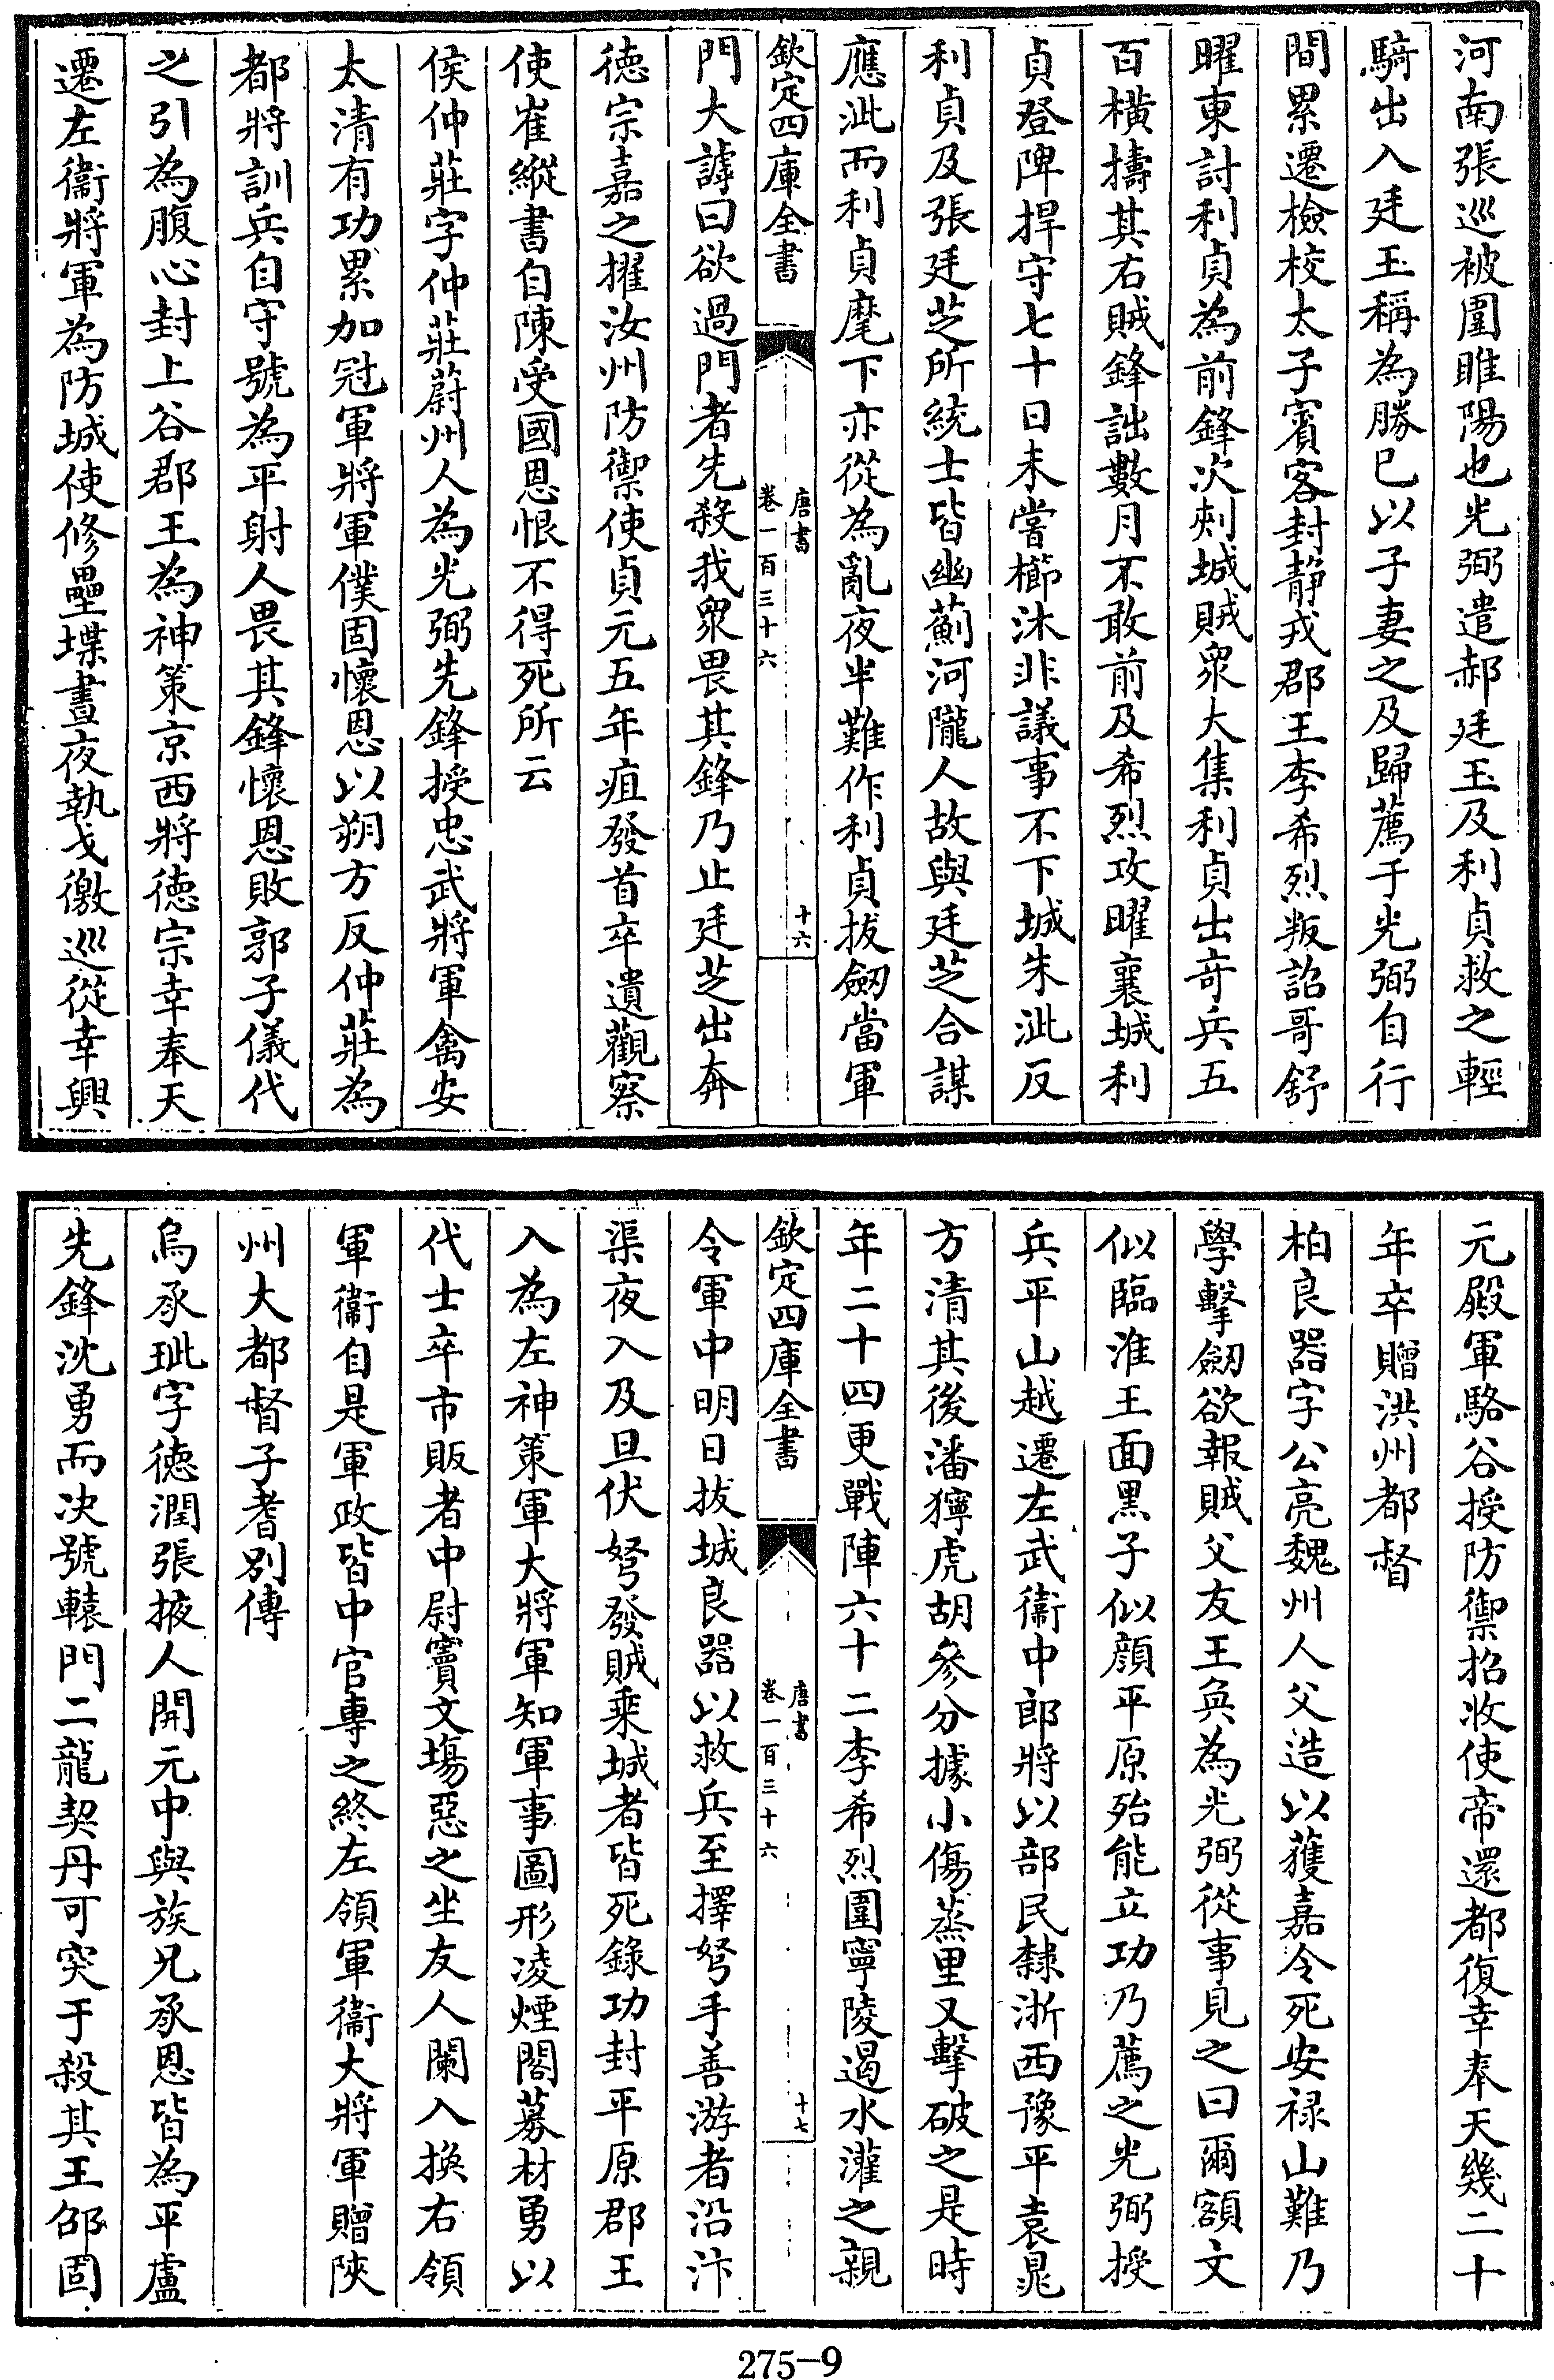 河南張巡被圍睢陽也光弼遣郝廷玉及利貞救之輕
騎出入廷玉稱為勝已以子妻之及歸薦于光弼自行
間累遷檢校太子賓客封静戎郡王李希烈叛詔哥舒
曜東討利貞為前鋒次刾城賊衆大集利貞出竒兵五
百横擣其右賊鋒詘數月不敢前及希烈攻曜襄城利
貞登陴捍守七十日未嘗櫛沐非議事不下城朱泚反
利貞及張廷芝所統士皆幽薊河隴人故與廷芝合謀
應泚而利貞麾下亦從為亂夜半難作利貞拔劒當軍
欽定四庫全書
唐書
卷一百三十六
十六
門大謼曰欲過門者先殺我衆畏其鋒乃止廷芝出奔
徳宗嘉之擢汝州防禦使貞元五年疽發首卒遺觀察
使崔縱書自陳受國恩恨不得死所云
侯仲莊字仲莊蔚州人為光弼先鋒授忠武將軍禽安
太清有功累加冠軍將軍僕固懷恩以朔方反仲莊為
都將訓兵自守號為平射人畏其鋒懷恩敗郭子儀代
之引為腹心封上谷郡王為神策京西將徳宗幸奉天
遷左衞將軍為防城使修壘堞晝夜執戈徼巡從幸興
元殿軍駱谷授防禦招收使帝還都復幸奉天幾二十
年卒贈洪州都督
柏良器字公亮魏州人父造以獲嘉令死安禄山難乃
學擊劒欲報賊父友王奐為光弼從事見之曰爾額文
似臨淮王面黒子似顔平原殆能立功乃薦之光弼授
兵平山越遷左武衞中郎將以部民隸浙西豫平袁晁
方清其後潘獰虎胡參分據小傷蒸里又擊破之是時
年二十四更戰陣六十二李希烈圍寧陵遏水灌之親
欽定四庫全書
唐書
卷一百三十六
十七
令軍中明日拔城良器以救兵至擇弩手善游者沿汴
渠夜入及旦伏弩發賊乘城者皆死錄功封平原郡王
入為左神策軍大將軍知軍事圖形凌煙閣募材勇以
代士卒市販者中尉竇文塲惡之坐友人闌入換右領
軍衞自是軍政皆中官專之終左領軍衞大將軍贈陜
州大都督子耆别傳
烏承玼字徳潤張掖人開元中與族兄承恩皆為平盧
先鋒沈勇而决號轅門二龍契丹可突于殺其王邵固
275-9